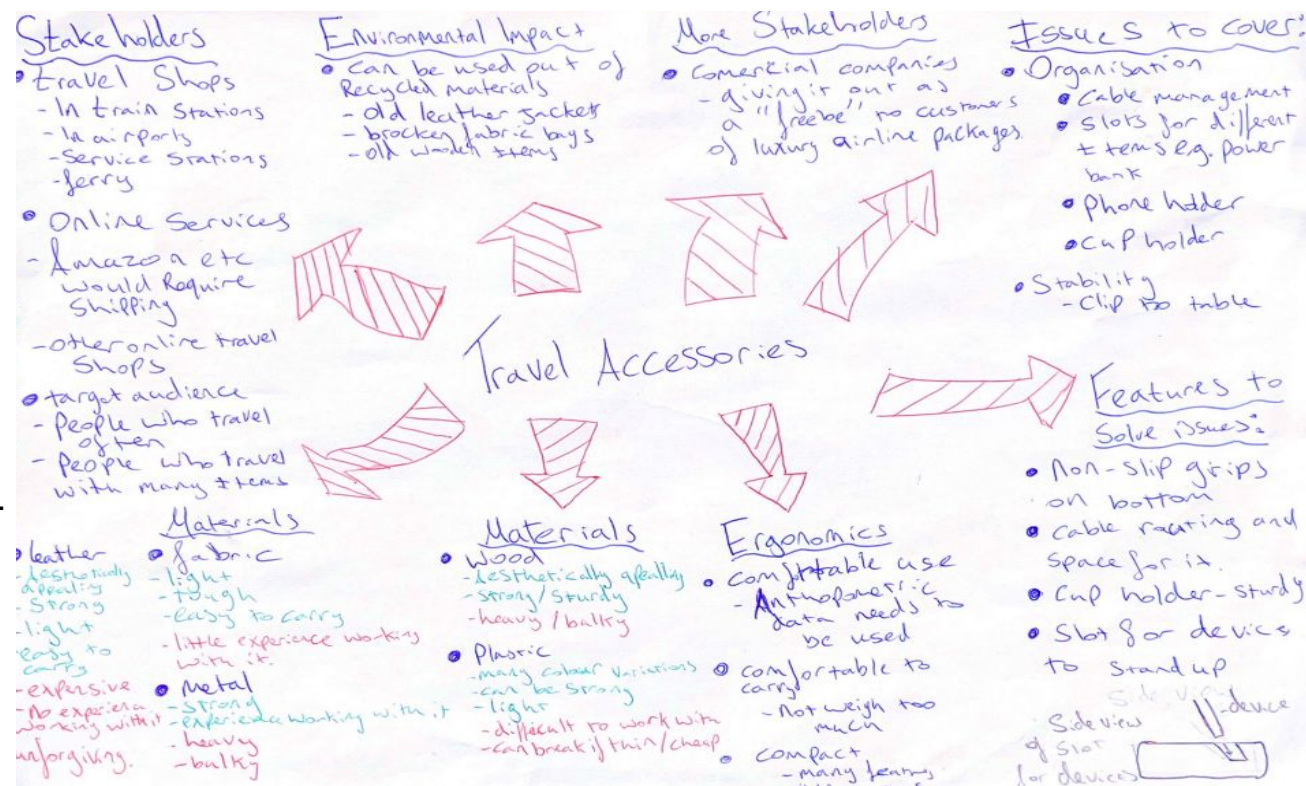 Stakeholders
• travel Shops
- In train Stations
- In airports
- Service Stations
- ferry
• Online Services
- Amazon etc
would Require
Shipping
- other online travel
Shops
• target audience
- People who travel
often
- People who travel
with many Items
Environmental Impact
• Can be used out of
Recycled materials
- Old leather jackets
- brocken fabric bags
- old wooden Items
More Stakeholders
• Comercial companies
- giving it out as
a "freebe" to customers
of luxury airline packages
Issues to cover:
• Organisation
• Cable management
• Slots for different
Items e.g. power
bank
• Phone holder
• Cup holder
• Stability
- Clip to table
Travel Accessories
Features to
Solve issues:
• Non-slip grips
on bottom
• cable routing and
Space for it.
• Cup holder - sturdy
• Slot for device
to Stand up
Side view
device
Side view
of Slot
for devices
Materials
• leather
- Aesthetically
appealing
- Strong
- light
easy to
carry
- expensive
- No experience
working with it
unforgiving.
• fabric
- light
- tough
- easy to carry
- little experience working
with it.
• Metal
- Strong
- experience working with it
- heavy
- bulky
Materials
• Wood
- Aesthetically
- Strong/Sturdy
- heavy/bulky
• Plastic
- many colour variations
- can be Strong
- light
- difficult to work with
- can break if thin/cheap
Ergonomics
• comfortable use
- data needs to
be used
• comfortable to
carry
- Not weigh too
much
• compact
- many